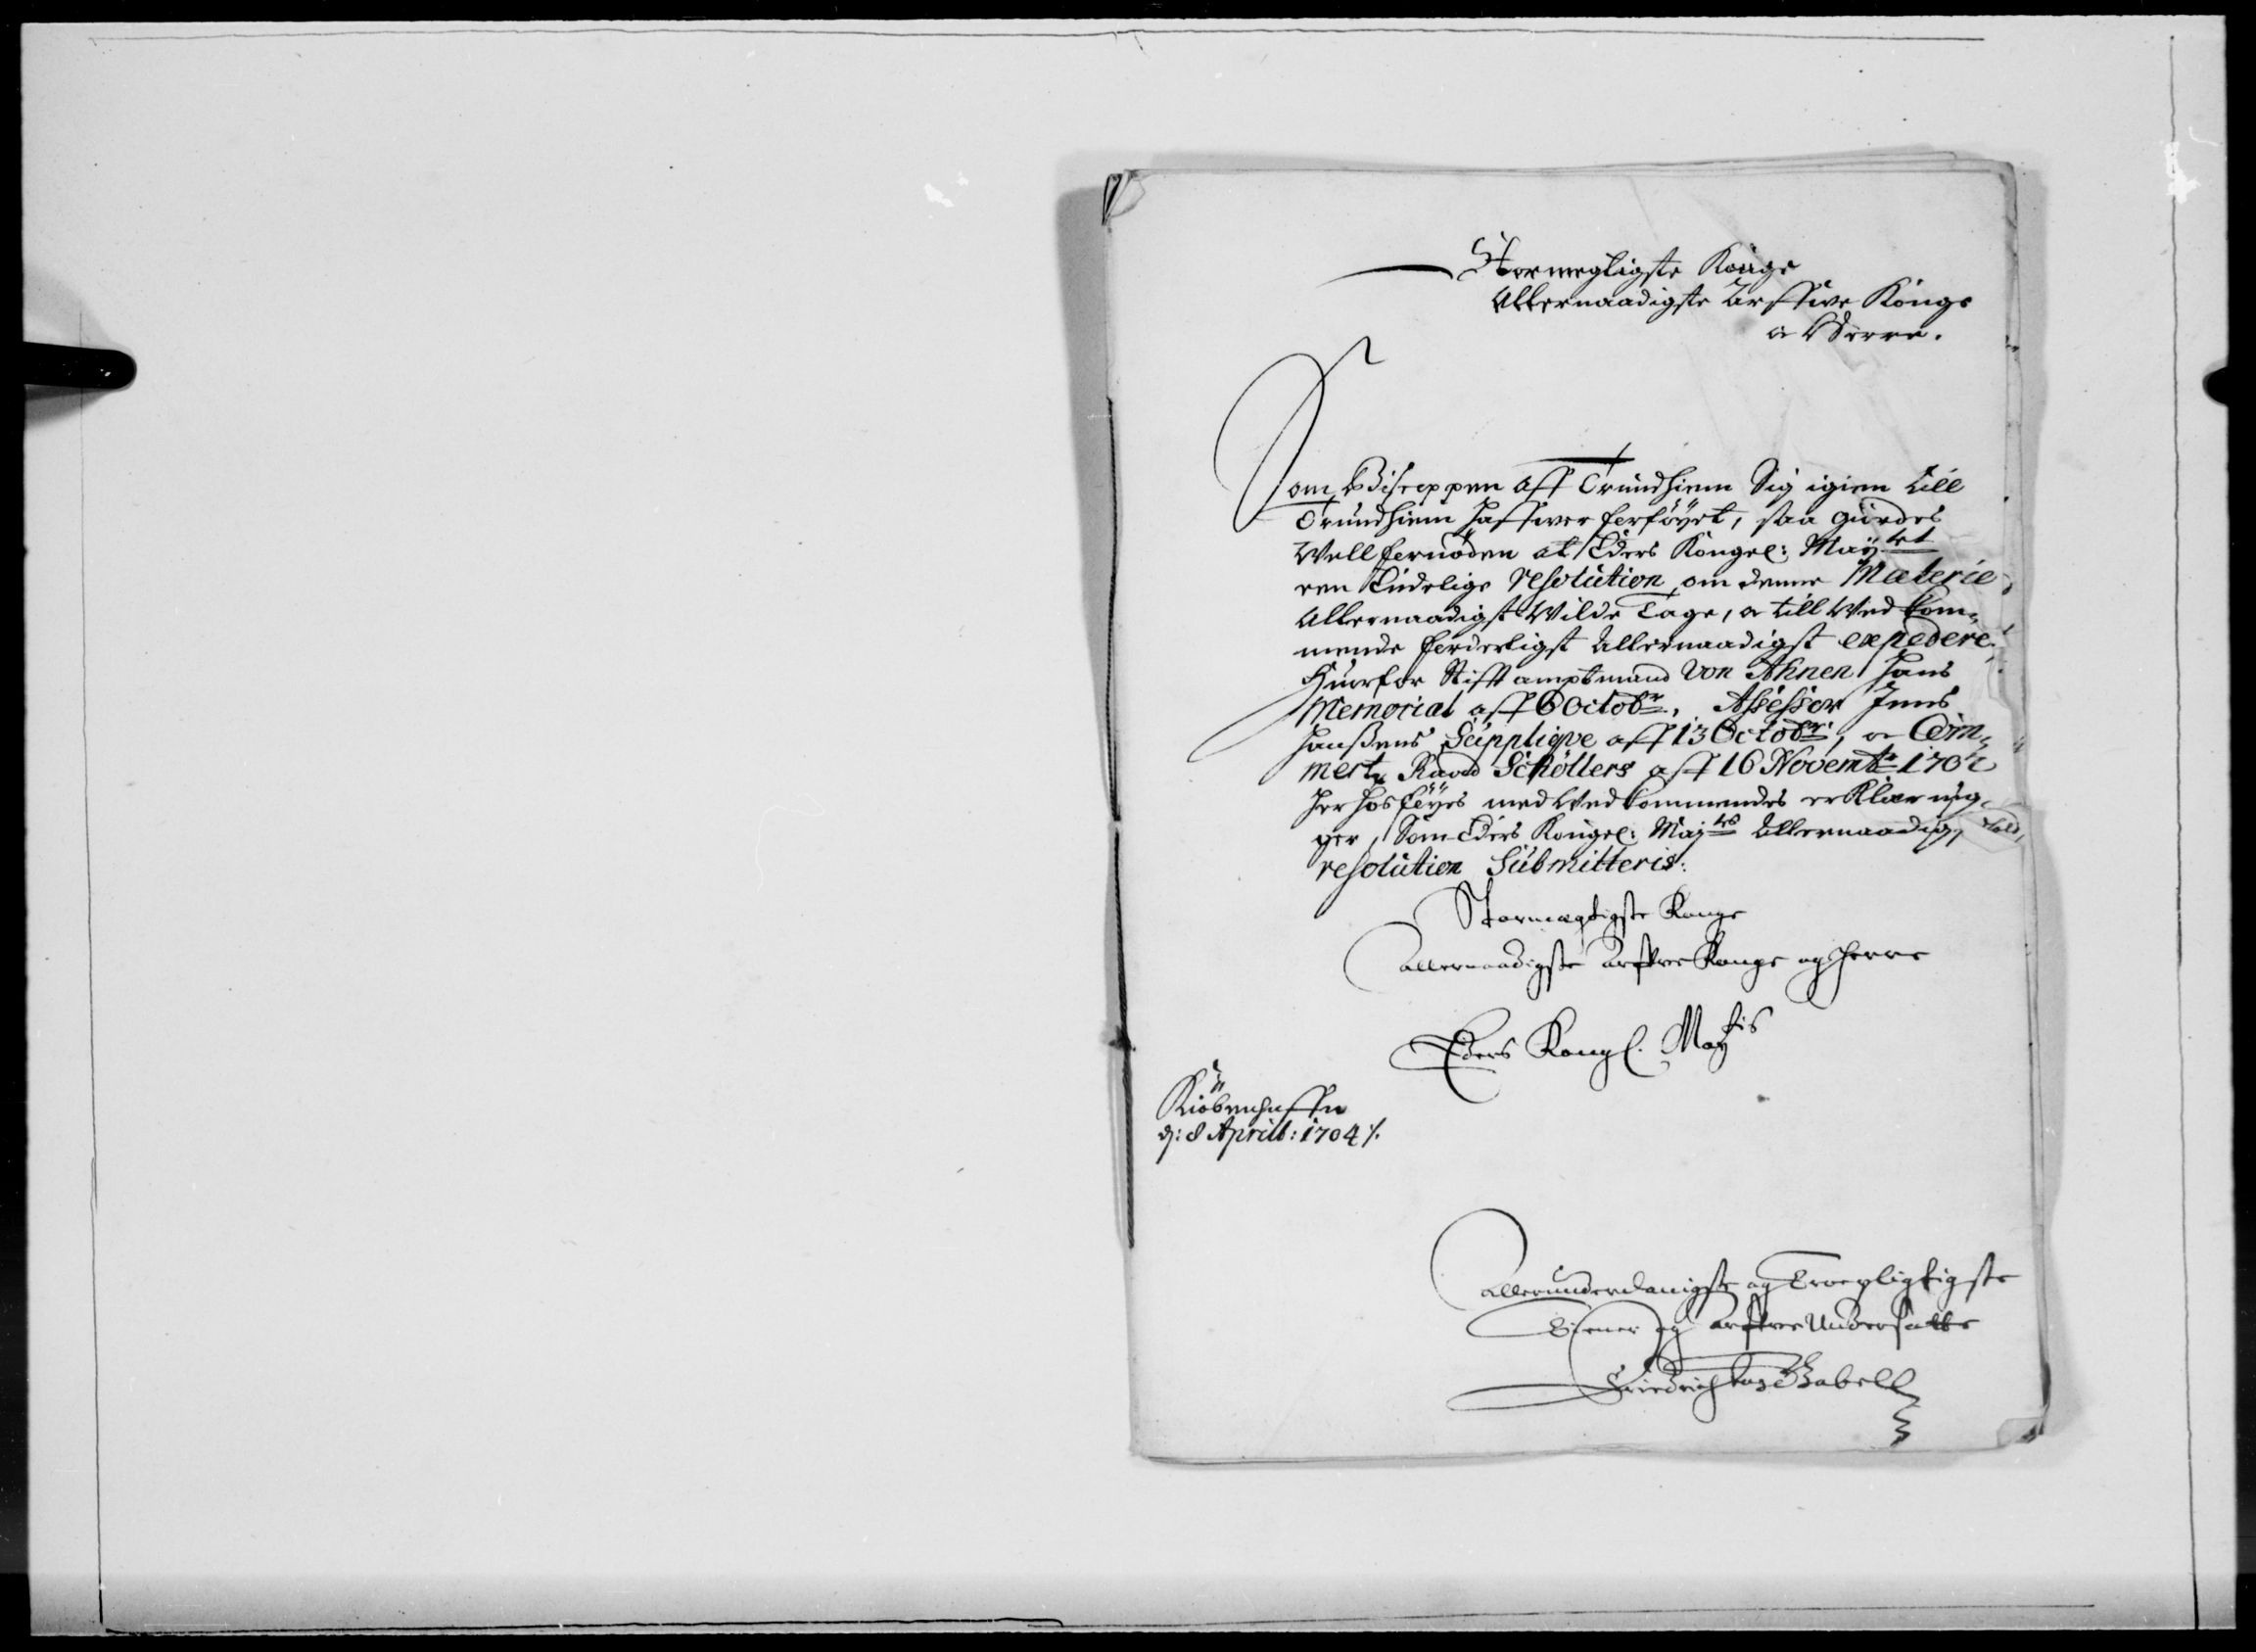 Stormegtigste Konge
Allernaadigste Arffwe Konge
o Herre.
Som Biscoppen aff Trundhiem Sig igien till
Trundhiem haffwer forföyet, saa giordes
Well fornöden at Eders Kongel: May.tet
een Endelige resolution om denne Materie
Allernaadigst Wilde Tage, o till Wed kom¬
mende forderligst Allernaadigst expedere.
Huorfor Stifft amptmand Von Ahnen hans
Memorial aff 6 Octobr., Assessor Jens
Hanßens Supplique aff 13 Octobr., o Com¬
mertz Raad Schöllers aff 16 Novembr 1702
her hos föyes med Wed kommendes erklæring¬
ger, Som Eders Kongel: Maj.ts Allernaadig,
resolution Submitteris:
Stormægtigste Konge
allernaadigste arfwe Konge og Herre
Eders Kongl. Maytis
Kiöbenhaffn
d: 8 April: 1704 %.
allerunderdanigste og Troepligtigste
Tiener og arfwe Undersatte
Friedrich von Gabell